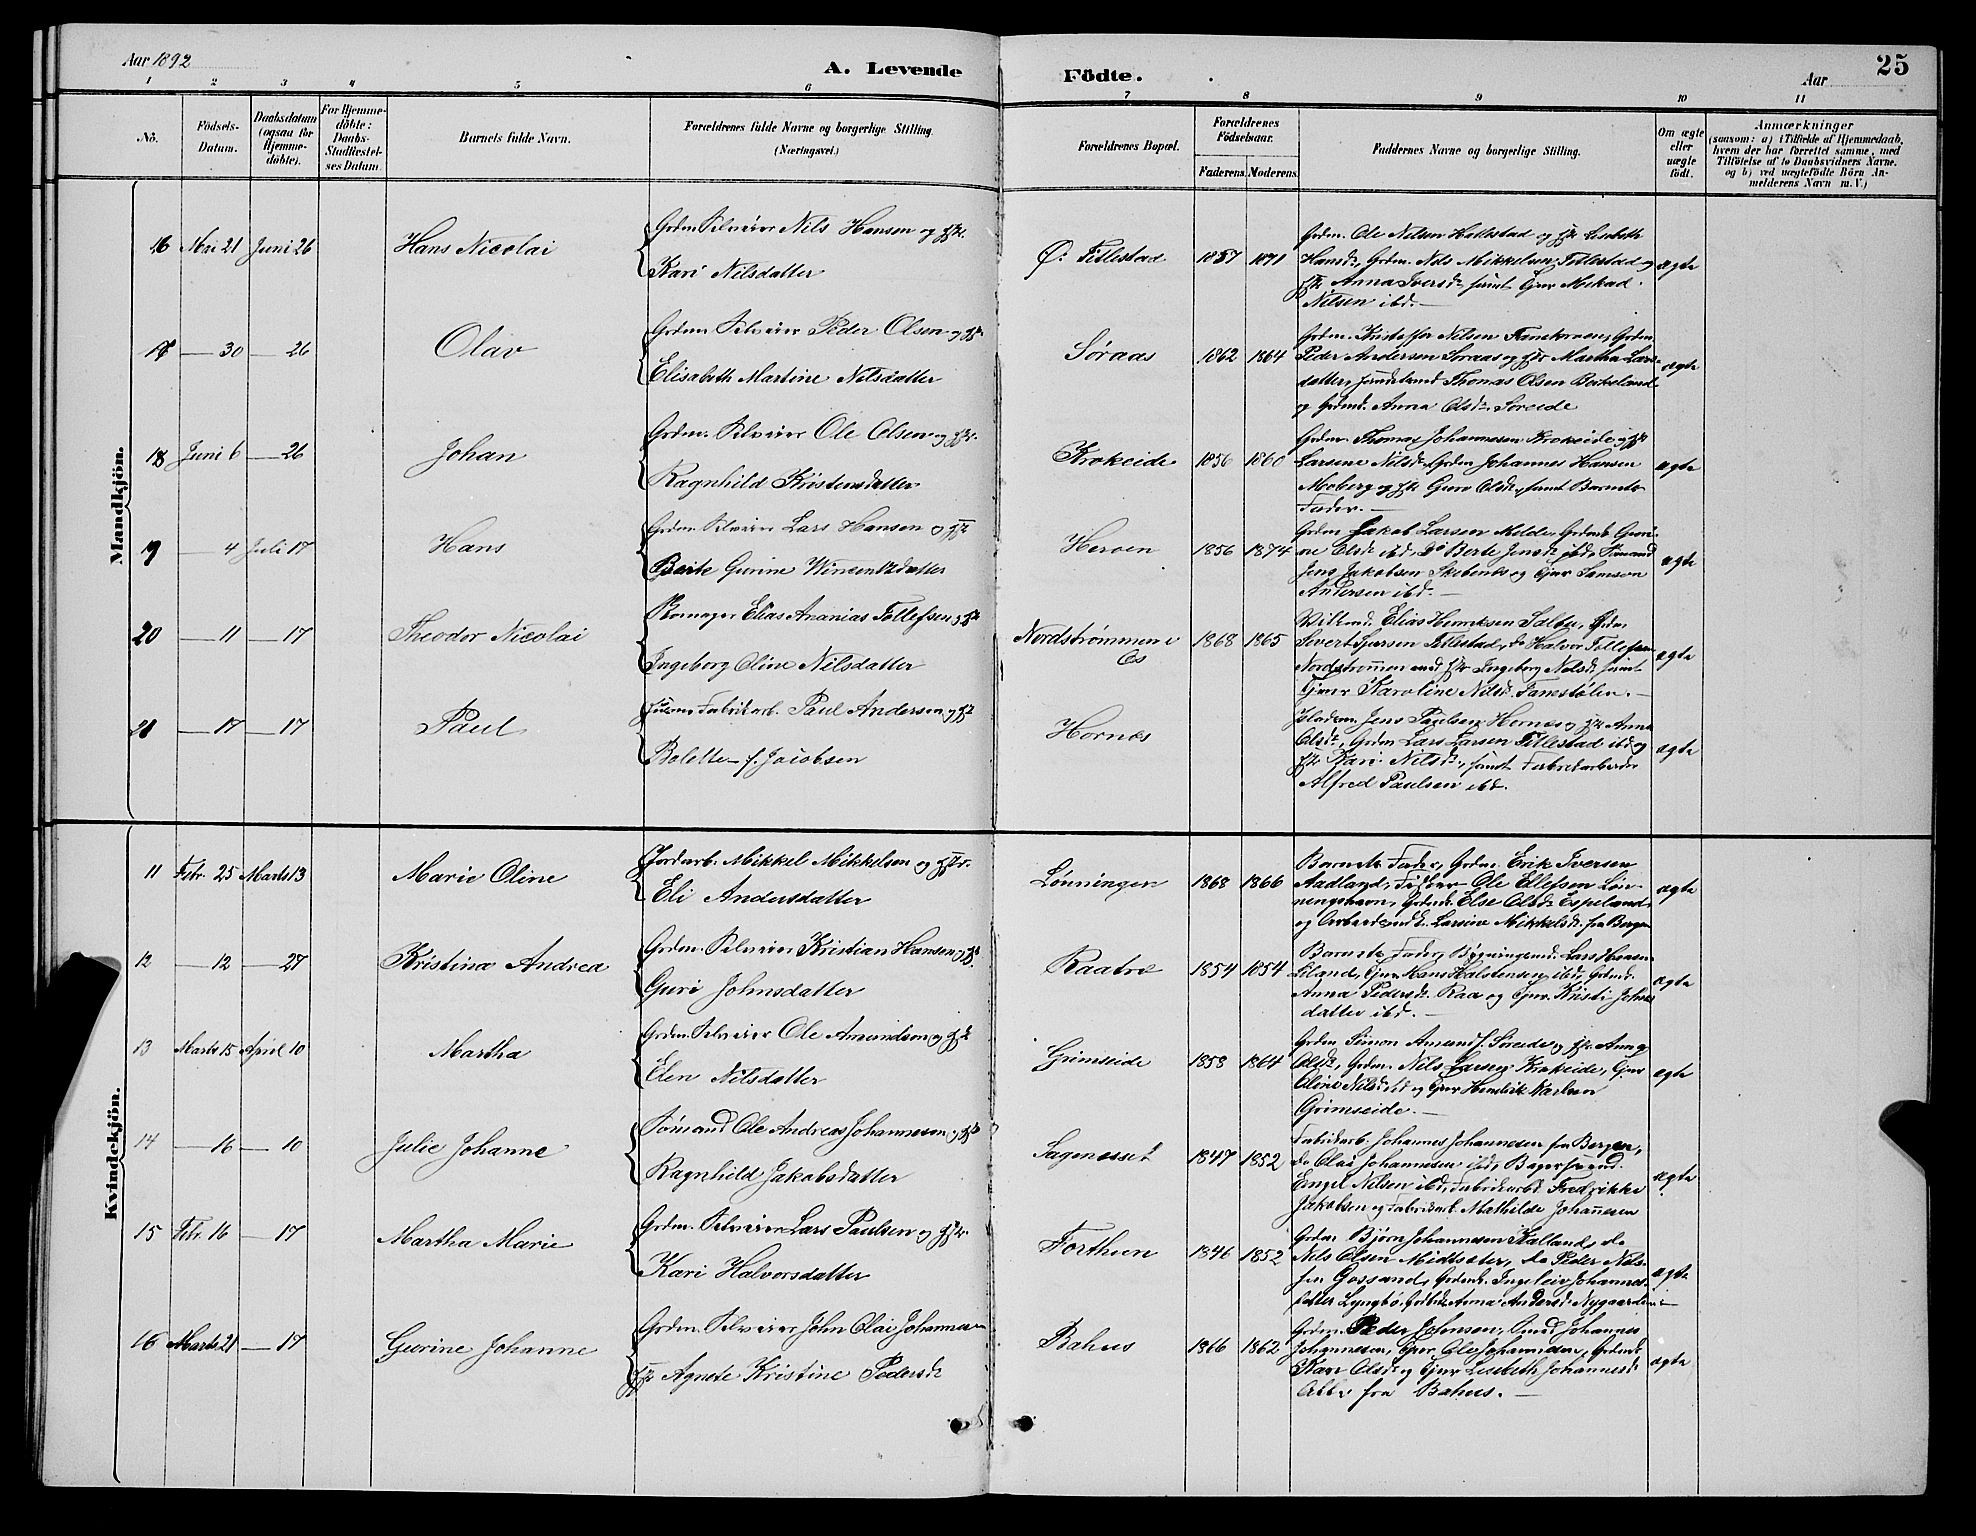 Aar 1892
A. Levende Födte.
Aar
25
1 2 3 4 5 6 7 8 9 10 11
No.
Födsels-Datum.
Daabsdatum (ogsaa for Hjemme-döbte).
For Hjemme-döbte: Daabs-Stadfæstel-ses Datum.
Barnets fulde Navn.
Forældrenes fulde Navne og borgerlige Stilling. (Næringsvei.)
Forældrenes Bopæl.
Forældrenes Födselsaar.
Faderens. Moderens.
Faddernes Navne og borgerlige Stilling.
Om ægte eller uægte födt.
Anmærkninger
(saasom: a) i Tilfælde af Hjemmedaab,
hvem der har forrettet samme, med
Tilföielse af to Daabsvidners Navne.
og b) ved uægtefödte Börn An-
melderens Navn m. V.)
Mandkjön.
16 Mai 21 Juni 26 Hans Nicolai
Grdm. Selveier Nils Hansen og Hst.
Kari Nilsdatter
Ø. Titlestad 1857 1871
Grdm. Ole Nilsen Hatlestad og Hst Lisabeth
Hansdr, Grdm. Nils Mikkelsen Titlestad og
Hst. Anna Iversdr samt Gjmr Mikal
Nilsen ibd.
ægte
17 — 30 — 26 Olav
Grdm. Selveier Peder Olsen og Hst.
Elisabeth Martine Nilsdatter
Søraas 1862 1864
Grdm. Kristoffer Nilsen Fanetorven, Grdm
Peder Andersen Søraas og Hst Martha Lars-
datter, Handelsmd Thomas Olsen Birkeland
og Grdmd. Anna Olsdr Søreide
ægte
18 Juni 6 — 26 Johan
Grdm. Selveier Ole Olsen og Hst.
Ragnhild Kristensdatter
Krokeide 1856 1860
Grdm. Thomas Johannesen Krokeide og Hst
Larsine Nilsdr, Grdm Johannes Hansen
Moberg og Hst Guro Olsdr, samt Barnets
Fader.
ægte
19 — 4 Juli 17 Hans
Grdm. Selveier Lars Hansen og Hst
Berte Gurine Wincentzdatter
Herøen 1856 1874
Grdm Jakob Larsen Milde, Grdmd. Guri-
ne Olsdr ibd, Do Berte Jensdr ibd, Sømand
Jens Jakobsen Skibenes og Gjmr Samson
Andersen ibd.
ægte
20 — 11 — 17 Theodor Nicolai
Elias Ananias Tollefsen og Hst
Ingeborg Oline Nilsdatter
Nordstrømmen i Os 1868 1865
Elias Henriksen
Sivert Sjursen Titlestad, do Halvor Tollefsen
Nordstrømmen med Hst Ingeborg Nilsdr samt
Gjmr Karoline Nilsdr Fanestølen.
ægte
21 — 17 — 17 Paul
Fabrikarb. Paul Andersen og Hst
Bolette f. Jacobsen
Hornes
Jens Paulsen Hornes og Hst Anna
Olsdr, Grdm Lars Larsen Titlestad ibd og
Hst Kari Nilsdr, samt Fabrikarbeider
Alfred Paulsen ibd.
ægte
Kvindekjön.
11 Febr. 25 Marts 13 Marie Oline
Jordarb. Mikkel Mikkelsen og Hstr.
Eli Andersdatter
Lønningen 1868 1866
Barnets Fader, Grdm. Erik Iversen
Aadland, Ole Ellefsen Løn-
ningshavn, Grdmd. Else Olsdr Espeland,
og Arbeidsmd. Larsine Mikkelsdr fra Bergen
ægte
12 — 12 — 27 Kristina Andrea
Grdm. Selveier Kristian Hansen og Hst.
Guri Johnsdatter
Raatræ 1854 1854
Barnets Fader, Bygningsmd. Lars Hansen
Liland, Gjmr Hans Halstensen ibd, Grdmd.
Anna Pedersdr Raa og Gjmr Kristi Johns
datter ibd.
ægte
13 Marts 15 April 10 Martha
Grdm. Selveier Ole Amundsen og Hst
Elen Nilsdatter
Grimseide 1858 1864
Grdm Simon Amunds. Søreide og Hst. Anna
Olsdr, Grdm. Nils Larsen Krokeide, Gjmr
Oline Nilsdr ibd og Gjmr Hendrik Karlsen
Grimseide.
ægte
14 — 16 — 10 Julie Johanne
Sømand Ole Andreas Johannesen og Hst
Ragnhild Jakobsdatter
Sagenesset 1847 1852
Fabrikarb. Johannes Johannesen fra Bergen,
do Olai Johannesen ibd, Bagersvend.
Engel Nilsen ibd, Fabrikarbd Fredrikke
Jakobsen og Fabrikarb. Mathilde Johannesen
ægte
15 Febr. 16 — 17 Martha Marie
Grdm. Selveier Lars Paulsen og Hstr.
Kari Halvorsdatter
Forthun 1846 1852
Grdm. Bjørn Johannesen Kalland, do
Nils Olsen Midtsæter, do Peder Nils-
sen Gossand, Grdmd. Ingeleiv Johannes-
datter Lyngbø, Anna Andersdr Nygaarden
ægte
16 Marts 21 — 17 Gurine Johanne
Grdm. Selveier John Olai Johannesen
Hst Agnete Kristine Pedersdr
Bahus 1866 1862
Grdm. Peder Johnsen, Johannes
Johannesen, Gjmr Ole Johannesen, Grdmd.
Kari Olsdr og Gjmr Lisebeth Johannesdr
Alle fra Bahus.
ægte